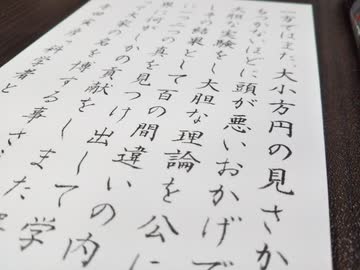 一方ではまた、大小方円の見さか
もつかないほどに頭が悪いおかげで
大胆な実験をし大胆な理論を公に
しその結果として百の間違いの内
に一つ二つの真を見つけ出して学
界に何がしかの貢献をしまた
って大家の名を博する事さ
寺田寅彦 科学者と